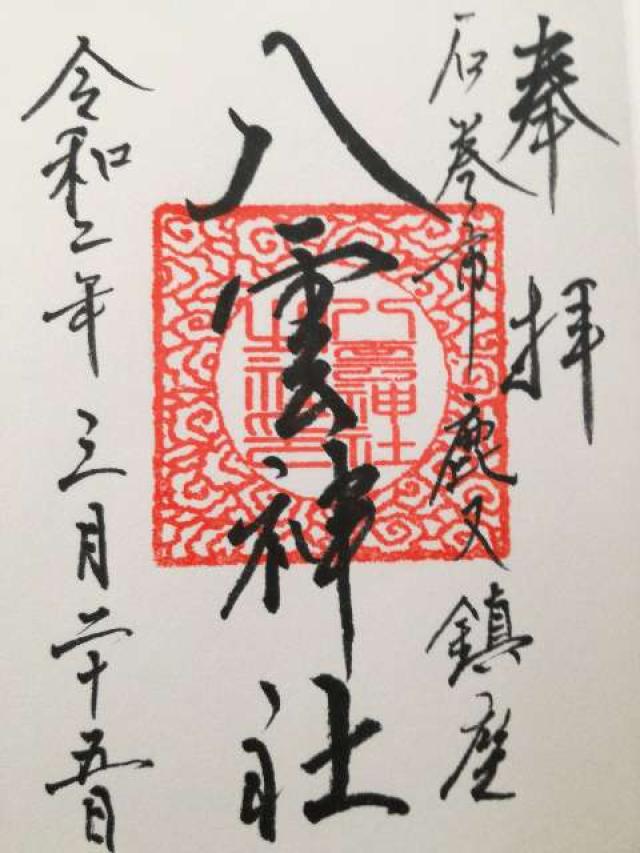 奉拝
石巻市鹿又鎮座
八雲神社
令和二年三月二十五日
八雲神社